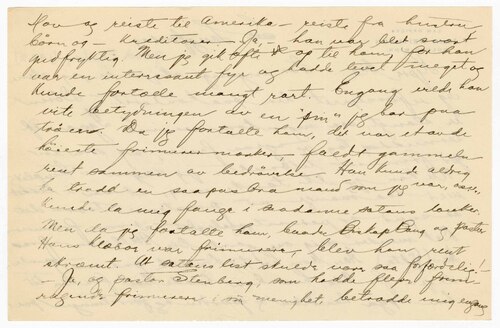 Nov og reiste til Amerika – reiste fra hustru
börn og – kreditorer – Ja, – han var blet svært
gudfrygtig. Men jeg gik ofte op til ham, for han
var en interessant fyr og hadde levet meget og
kunde fortælle mangt rart. Engang vilde han
vite betydningen av en "pin" jeg bar paa
tröien. Da jeg fortalte ham, det var et av de
höieste frimurer merker, faldt gammeln
rent sammen av bedrövelse. Han hunde aldrig
ha trodd en saapas bra mand som jeg var,
kunde la mig fange i satans lænker.
Men da jeg fortalte ham, baade Biskop Bang og pastor
Hans var frimurere, blev han rent
skræmt. At satans list skulde være saa forfærdelig! –
– Ja, og pastor Stenberg, som hadde flere frem-
ragende frimurere i sin menighet, betrodde mig engang